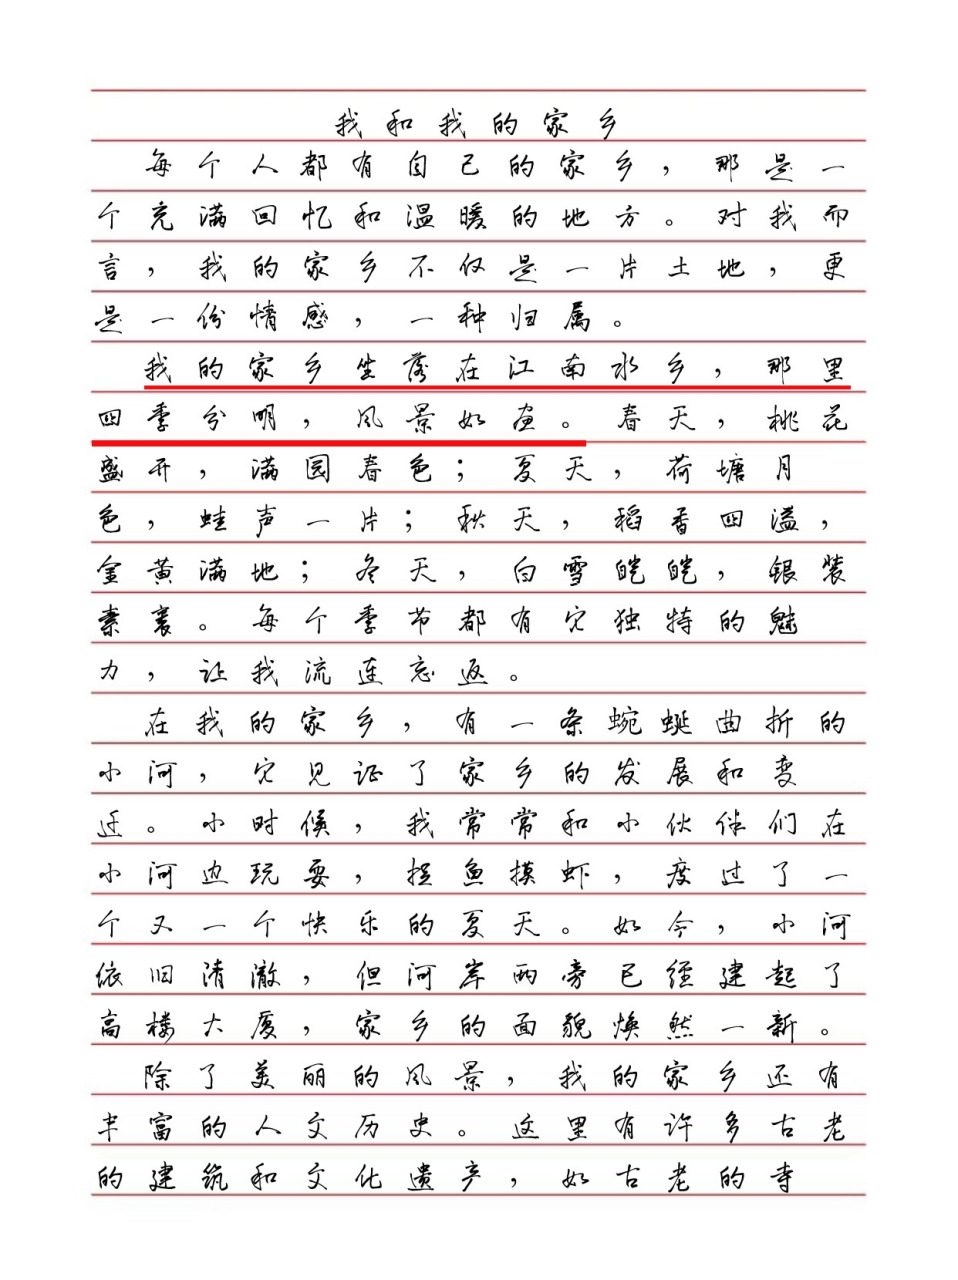 我和我的家乡
每个人都有自己的家乡，那是一
个充满回忆和温暖的地方。对我而
言，我的家乡不仅是一片土地，更
是一份情感，一种归属。
我的家乡坐落在江南水乡，那里
四季分明，风景如画。春天，桃花
盛开，满园春色；夏天，荷塘月
色，蛙声一片；秋天，稻香四溢，
金黄满地；冬天，白雪皑皑，银装
素裹。每个季节都有它独特的魅
力，让我流连忘返。
在我的家乡，有一条蜿蜒曲折的
小河，它见证了家乡的发展和变
迁。小时候，我常常和小伙伴们在
小河边玩耍，捉鱼摸虾，度过了一
个又一个快乐的夏天。如今，小河
依旧清澈，但河岸两旁已经建起了
高楼大厦，家乡的面貌焕然一新。
除了美丽的风景，我的家乡还有
丰富的人文历史。这里有许多古老
的建筑和文化遗产，如古老的寺